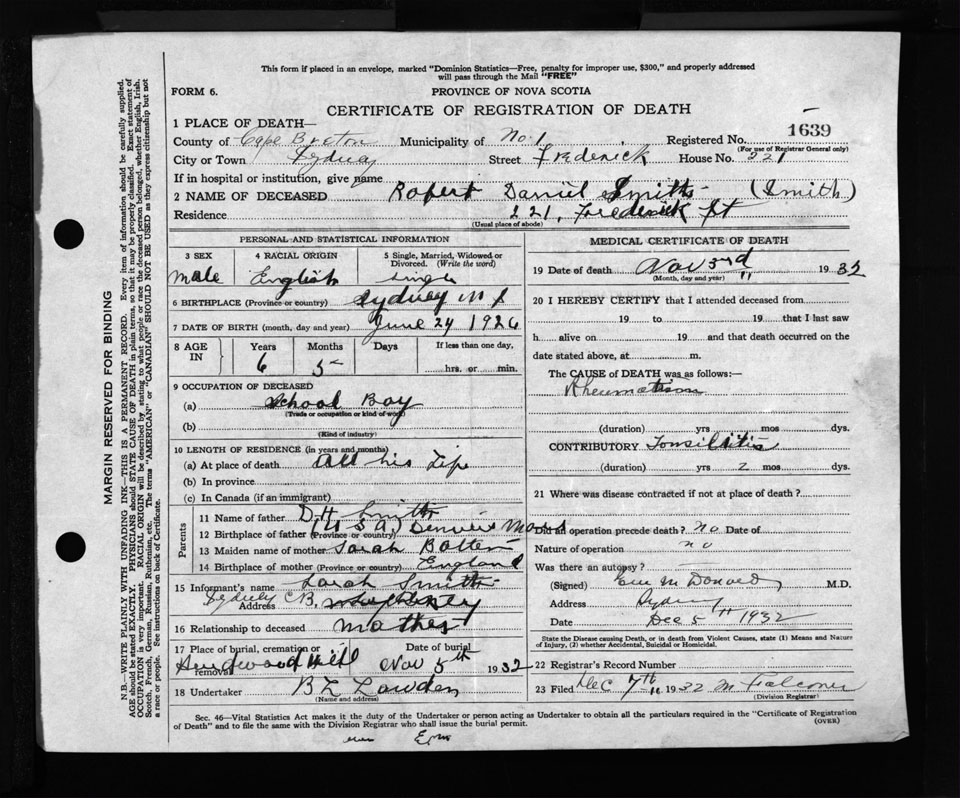 This form if placed in an envelope, marked "Dominion Statistics—Free, penalty for improper use, $300," and properly addressed
will pass through the Mail "FREE"
FORM 6. PROVINCE OF NOVA SCOTIA
CERTIFICATE OF REGISTRATION OF DEATH
1 PLACE OF DEATH—
County of Cape Breton Municipality of No. 1 Registered No. 1639
(For use of Registrar General only)
City or Town Sydney Street Frederick House No. 221
If in hospital or institution, give name
2 NAME OF DECEASED Robert Daniel Smith (Smith)
Residence 221, Frederick St
(Usual place of abode)
PERSONAL AND STATISTICAL INFORMATION
3 SEX 4 RACIAL ORIGIN 5 Single, Married, Widowed or
Divorced. (Write the word)
male English single
6 BIRTHPLACE (Province or country) Sydney N S
7 DATE OF BIRTH (month, day and year) June 24 1926
8 AGE IN Years Months Days If less than one day,
6 5 hrs. or min.
9 OCCUPATION OF DECEASED
(a) School Boy
(Trade or occupation or kind of work)
(b)
(Kind of industry)
10 LENGTH OF RESIDENCE (in years and months)
(a) At place of death All his Life
(b) In province
(c) In Canada (if an immigrant)
Parents
11 Name of father D H Smith
12 Birthplace of father (Province or country) U S A,
13 Maiden name of mother Sarah Batten
14 Birthplace of mother (Province or country) England
15 Informant's name Sarah Smith
Address Sydney C B.
16 Relationship to deceased mother
17 Place of burial, cremation or removal Date of burial
Hardwood Hill Nov 5th 1932
18 Undertaker B L
(Name and address)
MEDICAL CERTIFICATE OF DEATH
19 Date of death Nov 3rd 1932
(Month, day and year)
20 I HEREBY CERTIFY that I attended deceased from
19 to 19 that I last saw
h alive on 19 and that death occurred on the
date stated above, at m.
The CAUSE of DEATH was as follows:—
Rheumatism
(duration) yrs mos dys.
CONTRIBUTORY Tonsilitis
(duration) yrs 2 mos dys.
21 Where was disease contracted if not at place of death?
Did an operation precede death? no Date of
Nature of operation no
Was there an autopsy?
(Signed) McDonald M.D.
Address Sydney
Date Dec 5" 1932
State the Disease causing Death, or in death from Violent Causes, state (1) Means and Nature
of Injury, (2) whether Accidental, Suicidal or Homicidal.
22 Registrar's Record Number
23 Filed Dec 7th 1932 M Falconer
(Division Registrar)
Sec. 46—Vital Statistics Act makes it the duty of the Undertaker or person acting as Undertaker to obtain all the particulars required in the "Certificate of Registration
of Death" and to file the same with the Division Registrar who shall issue the burial permit. (OVER)
MARGIN RESERVED FOR BINDING
N.B.—WRITE PLAINLY WITH UNFADING INK—THIS IS A PERMANENT RECORD. Every item of information should be carefully supplied.
AGE should be stated EXACTLY. PHYSICIANS should STATE CAUSE OF DEATH in plain terms, so that it may be properly classified. Exact statement of
OCCUPATION is very important. RACIAL ORIGIN will be described by stating to what people or race the deceased person belonged, whether English, Irish,
Scotch, French, German, Russian, Ruthenian, etc. The terms "AMERICAN" or "CANADIAN" SHOULD NOT BE USED as they express citizenship but not
a race or people. See instructions on back of Certificate.